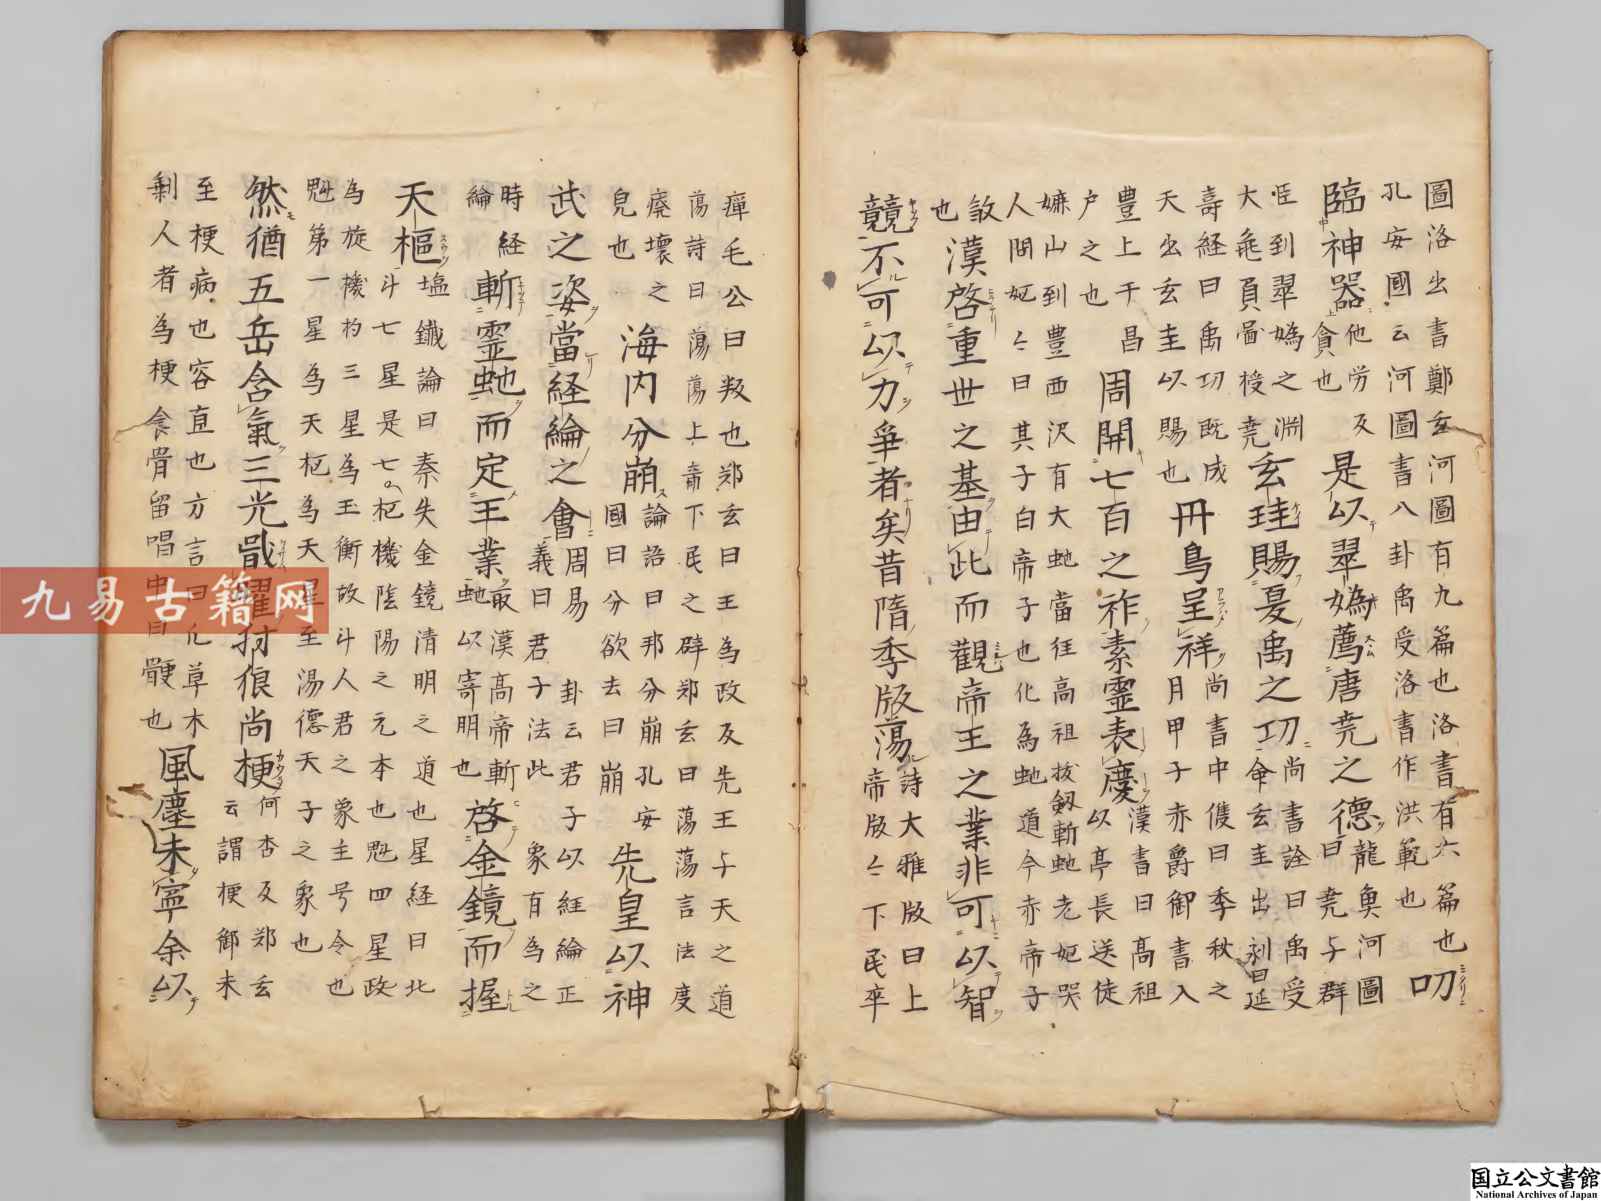 圖洛出書鄭玄河圖有九篇也洛書有六篇也
孔安國云河圖書八卦禹受洛書作洪範也
叨
臨神器
他労反
貪也
是以翠媯薦唐尭之德
龍魚河圖
曰尭与群
臣到翠媯之淵
大龜負圖授尭
玄珪賜夏禹之功
尚書詮曰禹受
命玄圭出刻曰延
壽経曰禹功既成
天出玄圭以賜也
丹鳥呈祥
尚書中候曰季秋之
月甲子赤爵御書入
豊上于昌
户之也
周開七百之祚素霊表慶
漢書曰高祖
以亭長送徒
山到豊西沢有大虵當徑高祖抜劔斬虵老妪哭
人問妪々曰其子白帝子也化為虵道今赤帝子
敚
也
漢啓重世之基由此而觀帝王之業非可以智
競不可以力爭者矣昔隋季版蕩
詩大雅版曰上
帝版々下民卒
癉毛公曰叛也郑玄曰王為政反先王与天之道
蕩詩曰蕩蕩上帝下民之辟郑玄曰蕩蕩言法度
廃壊之
皃也
海内分崩
論語曰邦分崩孔安
國曰分欲去曰崩
先皇以神
武之姿當経綸之會
周易卦云君子以経綸正
義曰君子法此象有為之
時経
綸
斬霊虵而定王業
漢高帝斬
虵以寄明也
啓金鏡而握
天樞
塩鐵論曰秦失金鏡清明之道也星経曰北
斗七星是七々杔機陰陽之元本也魁四星政
為旋機杓三星為玉衡故斗人君之象主号令也
魁第一星為天杔為天星至湯德天子之象也
然猶五岳含氣三光戢耀犲狼尚梗
何杏反郑玄
云謂梗御未
至梗病也容直也方言曰凡草木
剌人者為梗食骨留喝中曰骾也
風塵未寧余以
九易古籍网
国立公文書館
National Archives of Japan